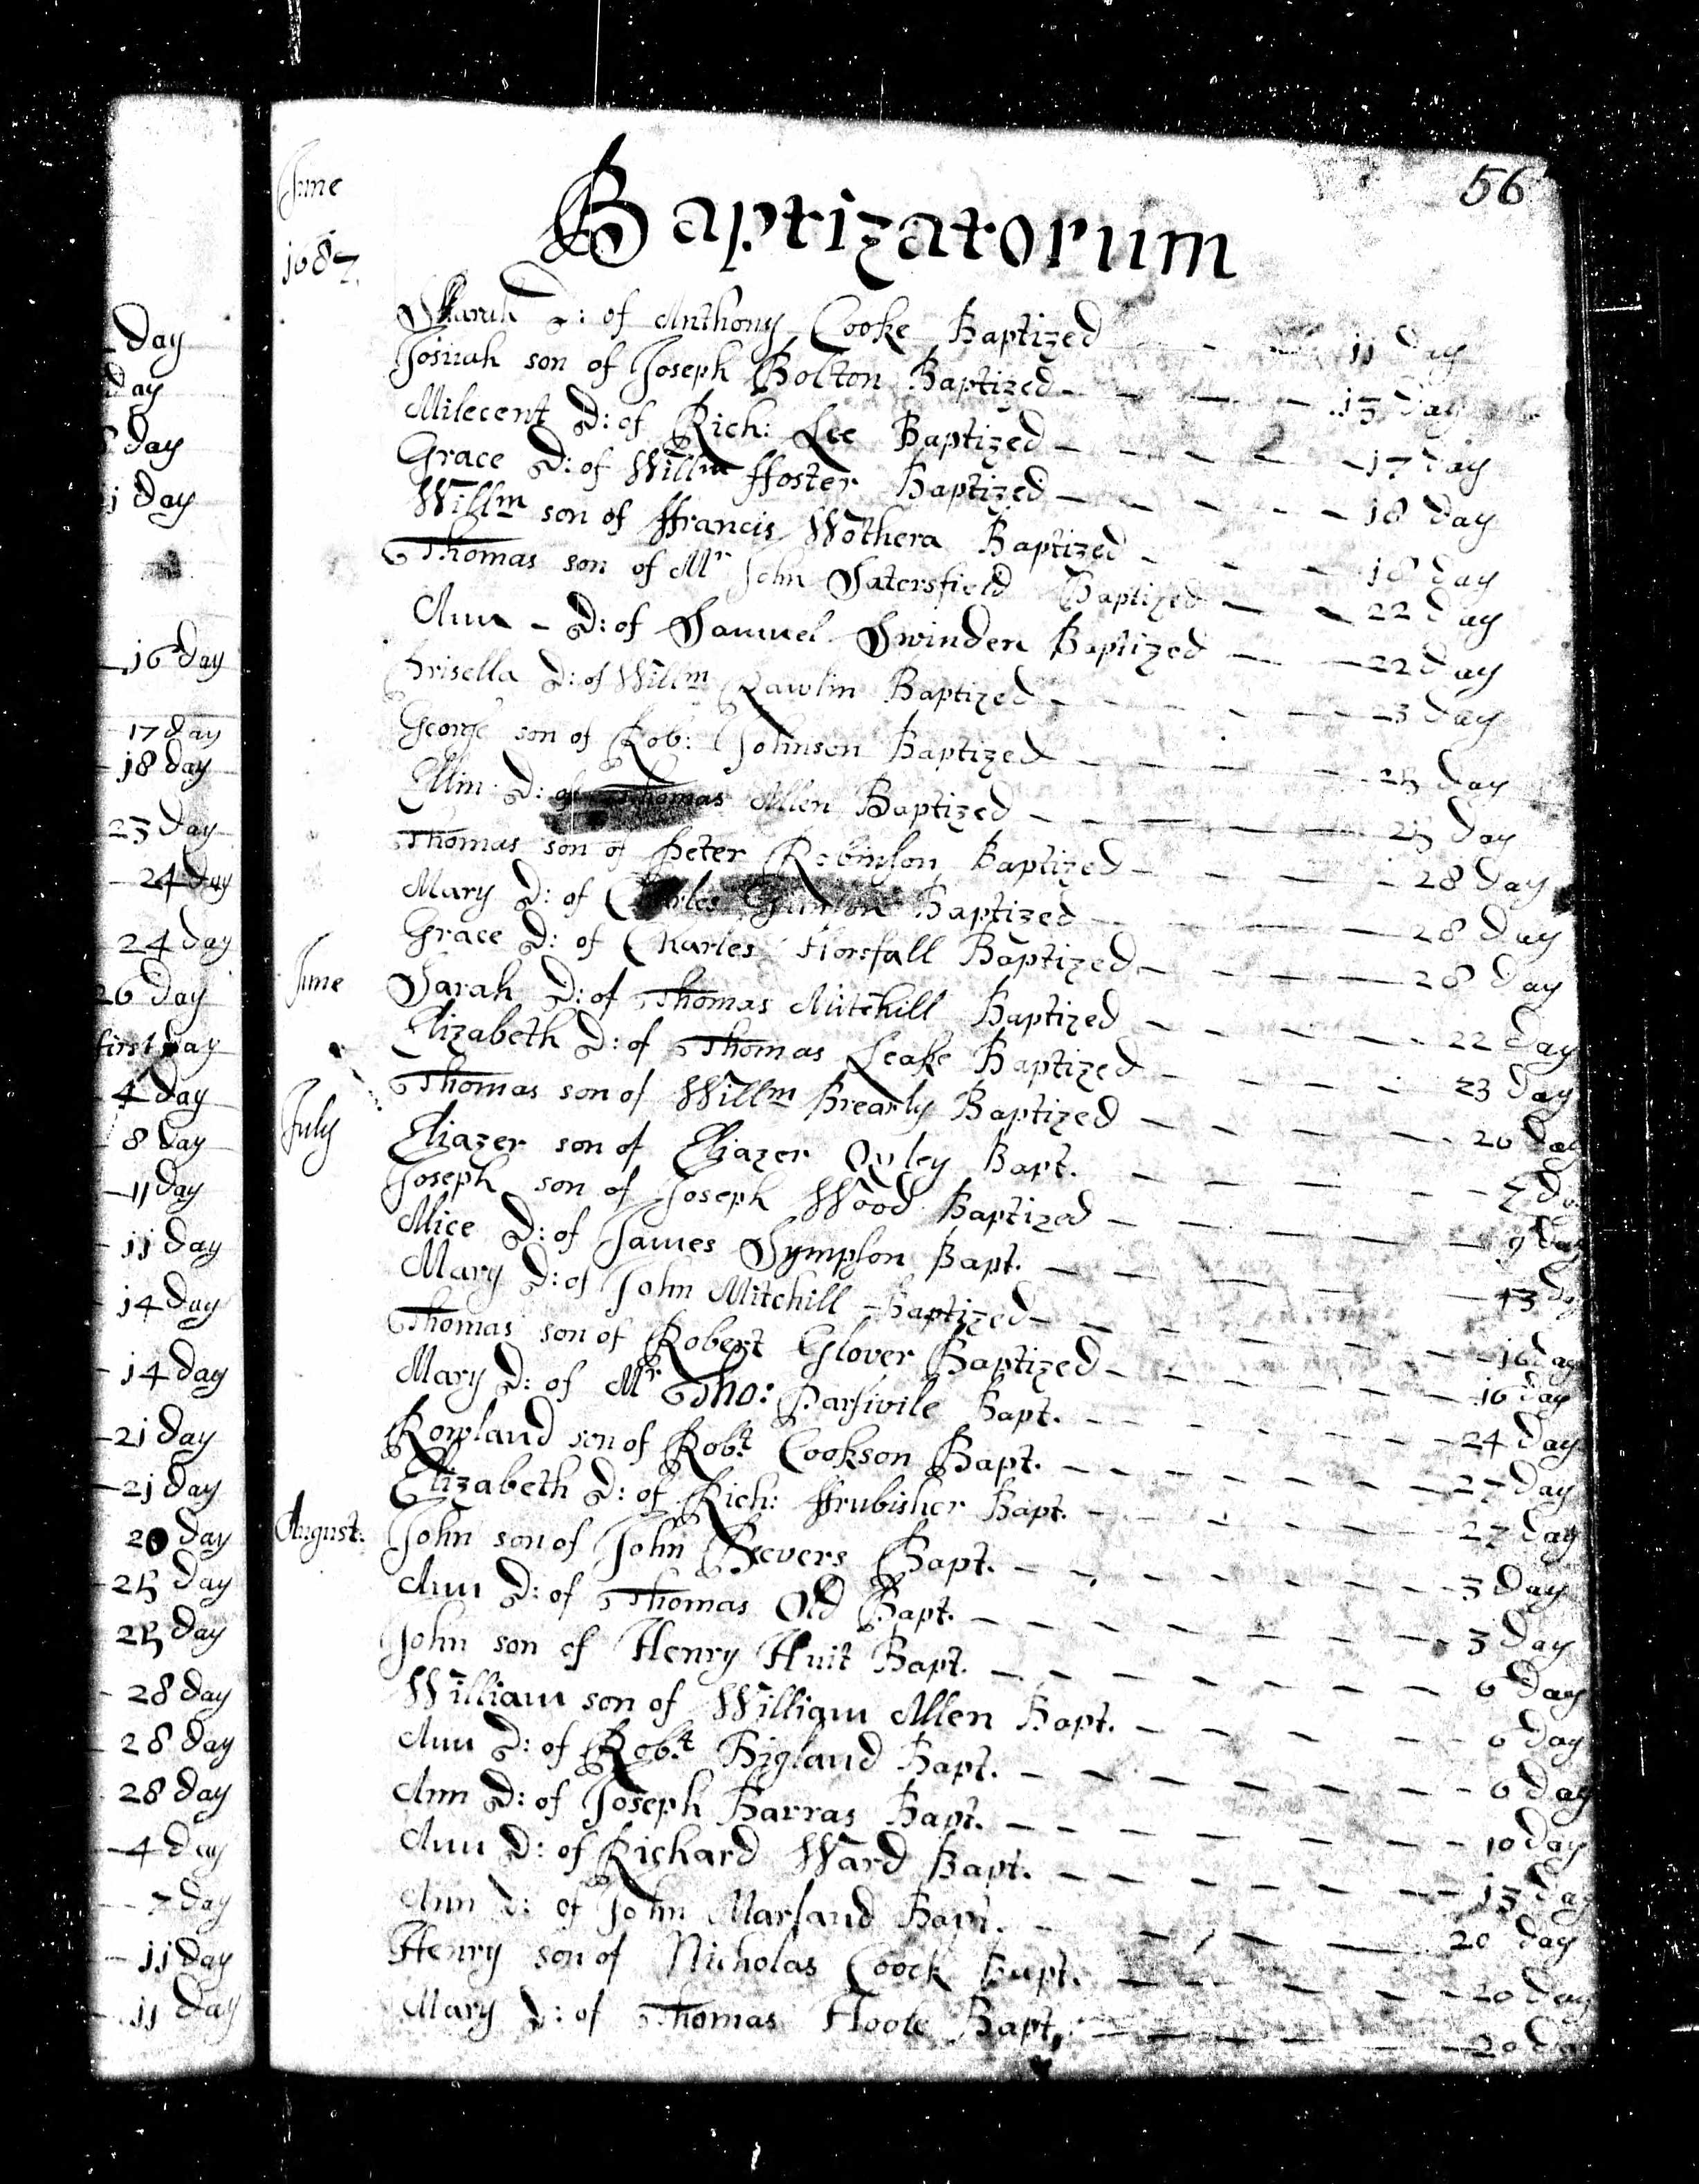 Day
day
8 day
1 Day
16 day
17 day
18 day
23 Day
24 day
24 day
26 day
first day
4 day
8 day
11 day
11 day
14 day
14 day
21 day
21 day
20 day
25 day
25 day
28 day
28 day
28 day
4 day
7 day
11 day
11 day
56
June
1687.
Baptizatorum
Sarah D: of Anthony Cooke Baptized 11 day
Josuah son of Joseph Bolton Baptized 13 day
Milecent D: of Rich: Lee Baptized 17 day
Grace D: of Willm ffoster Baptized 18 day
Willm son of ffrancis Wothera Baptized 18 day
Thomas son of Mr John Satersfield Baptized 22 day
Ann D: of Samuel Swinden Baptized 22 day
Prisella D: of Willm Rawlin Baptized 23 day
George son of Rob: Johnson Baptized 25 day
Ellin D: of Thomas Allen Baptized 25 day
Thomas son of Peter Robinson Baptized 28 day
Mary D: of Charles Baptized 28 day
Grace D: of Charles Horsfall Baptized 28 day
June Sarah D: of Thomas Mitchill Baptized 22 day
Elizabeth D: of Thomas Leake Baptized 23 day
Thomas son of Willm Brearly Baptized 26 day
July Eliazer son of Eliazer Oxley Bapt. day
Joseph son of Joseph Wood Baptized 9 day
Alice D: of James Sympson Bapt. 13 day
Mary D: of John Mitchill Baptized 16 day
Thomas son of Robert Glover Baptized 16 day
Mary D: of Mr Tho: Parsivile Bapt. 24 day
Rowland son of Robt Cookson Bapt. 27 day
Elizabeth D: of Rich: ffrubisher Bapt. 27 day
August. John son of John Bevers Bapt. 3 day
Ann D: of Thomas Old Bapt. 3 day
John son of Henry Huit Bapt. 6 day
William son of William Allen Bapt. 6 day
Ann D: of Robt Bigland Bapt. 6 day
Ann D: of Joseph Barras Bapt. 10 day
Ann D: of Richard Ward Bapt. 13 day
Ann D: of John Marsland Bapt. 20 day
Henry son of Nicholas Coock Bapt. 20 day
Mary D: of Thomas Hoole Bapt. 20 day